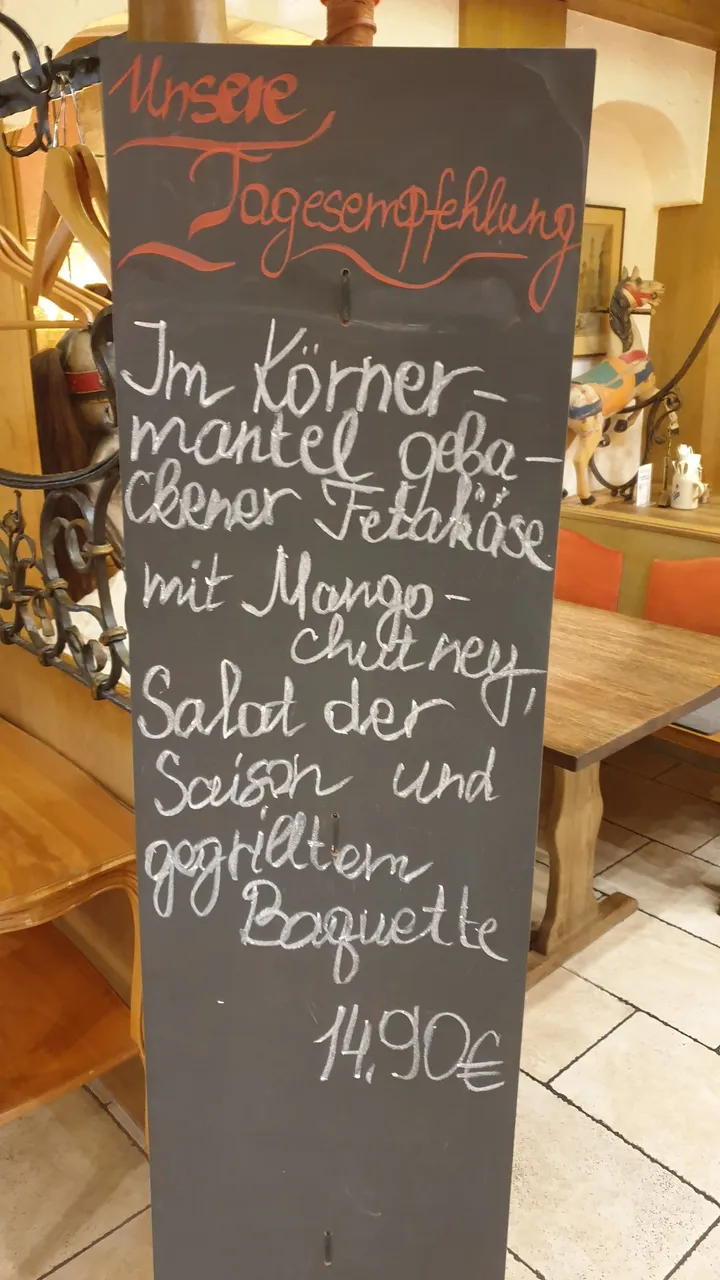 Unsere
Tagesempfehlung
Im Körner-
mantel geba-
ckener Fetakäse
mit Mango-
chutney,
Salat der
Saison und
gegrilltem
Baquette
14,90€